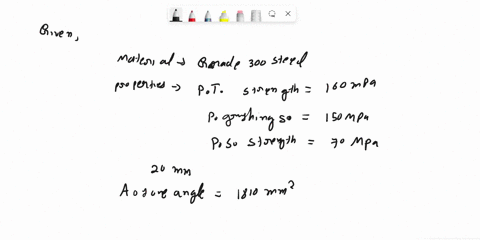 Given,
Material → Grade 300 steel
properties → P.T. strength = 160 mPa
P. crushing so = 150 MPa
P. so strength = 70 MPa
20 mm
A o angle = 1810 mm²